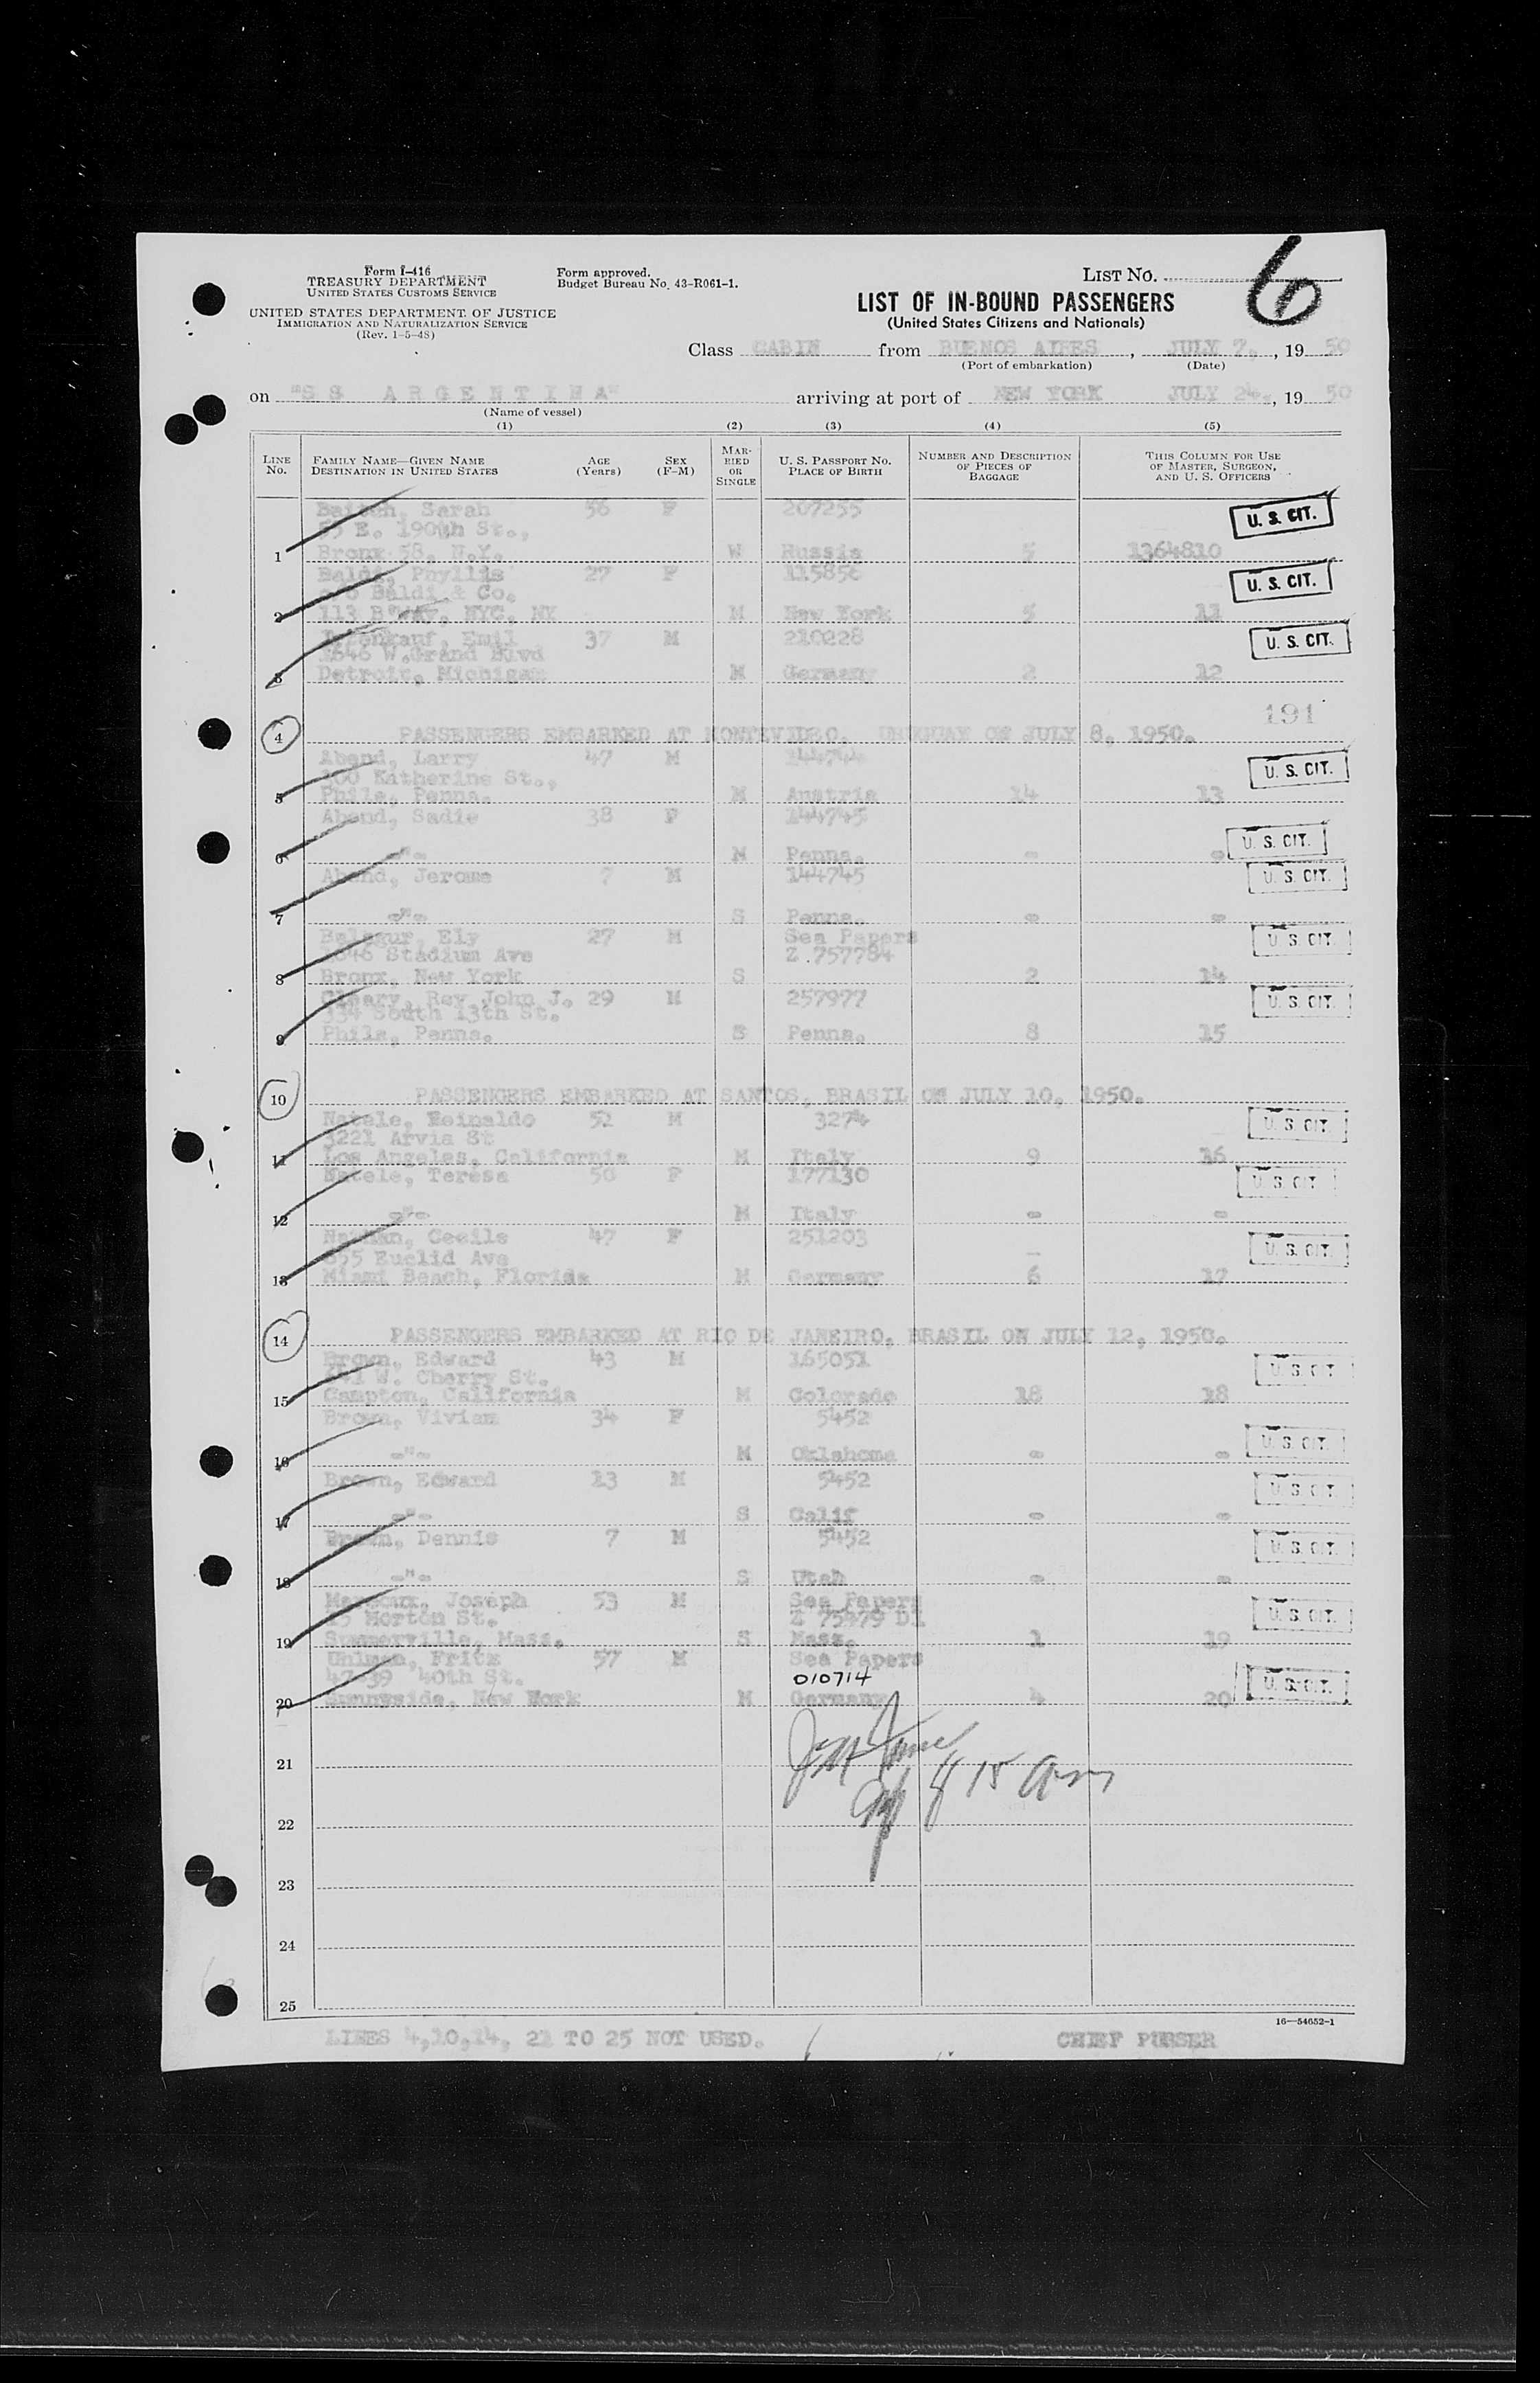 Form I-416
TREASURY DEPARTMENT
UNITED STATES CUSTOMS SERVICE
UNITED STATES DEPARTMENT OF JUSTICE
IMMIGRATION AND NATURALIZATION SERVICE
(Rev. 1-5-48)
Form approved.
Budget Bureau No. 43-R061-1.
LIST NO. 6
LIST OF IN-BOUND PASSENGERS
(United States Citizens and Nationals)
Class CABIN from BUENOS AIRES, JULY 7, 1950
(Port of embarkation) (Date)
on "SS ARGENTINA" arriving at port of NEW YORK JULY 24, 1950
(Name of vessel)
(1) (2) (3) (4) (5)
LINE No. FAMILY NAME—GIVEN NAME DESTINATION IN UNITED STATES AGE (Years) SEX (F-M) MARRIED OR SINGLE U. S. PASSPORT No. PLACE OF BIRTH NUMBER AND DESCRIPTION OF PIECES OF BAGGAGE THIS COLUMN FOR USE OF MASTER, SURGEON, AND U. S. OFFICERS
Sarah 56 F 207255 U. S. CIT.
55 E. 190th St.,
1 Bronx 58, N.Y. W Russia 5 1364810
Baldi, Phyllis 27 F U. S. CIT.
c/o Baldi & Co.
2 113 B'way, NYC, NY M New York 5 11
Emil 37 M 210228 U. S. CIT.
W.Grand Blvd
3 Detroit, Michigan M Germany 2 12
191
4 PASSENGERS EMBARKED AT MONTEVIDEO, URUGUAY ON JULY 8, 1950.
Abend, Larry 47 M U. S. CIT.
Katherine St.,
5 Phila, Penna. M Austria 14 13
Abend, Sadie 38 F 144745
6 -"- M Penna. - - U. S. CIT.
Abend, Jerome 7 M 144745 U. S. CIT.
7 -"- S Penna. - -
Balagur, Ely 27 M Sea Papers U. S. CIT.
Stadium Ave Z 757784
8 Bronx, New York S 2 14
Cleary, Rev John J. 29 M 257977 U. S. CIT.
334 South 13th St.
9 Phila, Penna. S Penna. 8 15
10 PASSENGERS EMBARKED AT SANTOS, BRASIL ON JULY 10, 1950.
Natele, Reinaldo 52 M 3274 U. S. CIT.
3221 Arvia St
11 Los Angeles, California M Italy 9 16
Natele, Teresa 50 F 177130 U. S. CIT.
12 -"- M Italy - -
Nathan, Cecile 47 F 251203 U. S. CIT.
Euclid Ave
13 Miami Beach, Florida M Germany 6 17
14 PASSENGERS EMBARKED AT RIO DE JANEIRO, BRASIL ON JULY 12, 1950.
Brown, Edward 43 M 165051 U. S. CIT.
W. Cherry St.
15 Campton, California M Colorado 18 18
Brown, Vivian 34 F 5452
16 -"- M Oklahoma - - U. S. CIT.
Brown, Edward 13 M 5452 U. S. CIT.
17 -"- S Calif - -
Brown, Dennis 7 M 5452 U. S. CIT.
18 -"- S Utah - -
Joseph 53 M Sea Papers U. S. CIT.
Morton St. Z 75479 D1
19 Summerville, Mass. S Mass. 1 19
Uhlman, Fritz 57 M Sea Papers
47-39 40th St. 010714 U. S. CIT.
20 Sunnyside, New York M Germany 4 20
21
15 am
22
23
24
25
16—54652-1
LINES 4,10,14, 21 TO 25 NOT USED. CHIEF PURSER